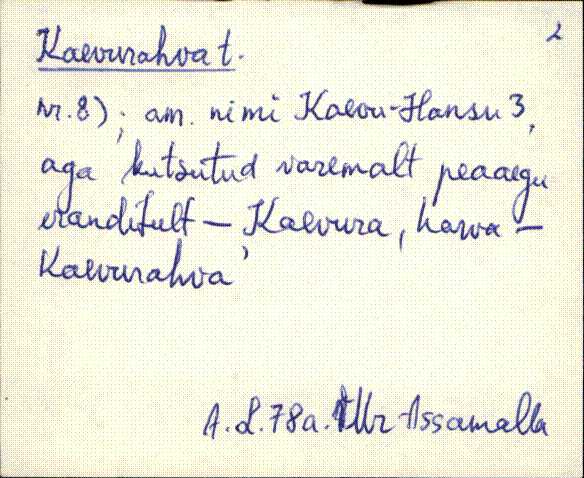 2
Kaevurahva t.
nr. 8); am. nimi Kaevu-Hansu 3,
aga kutsutud varemalt peaaegu
eranditult – Kaevura, harva –
Kaevurahva
A. L. 78a. VMr-Assamalla